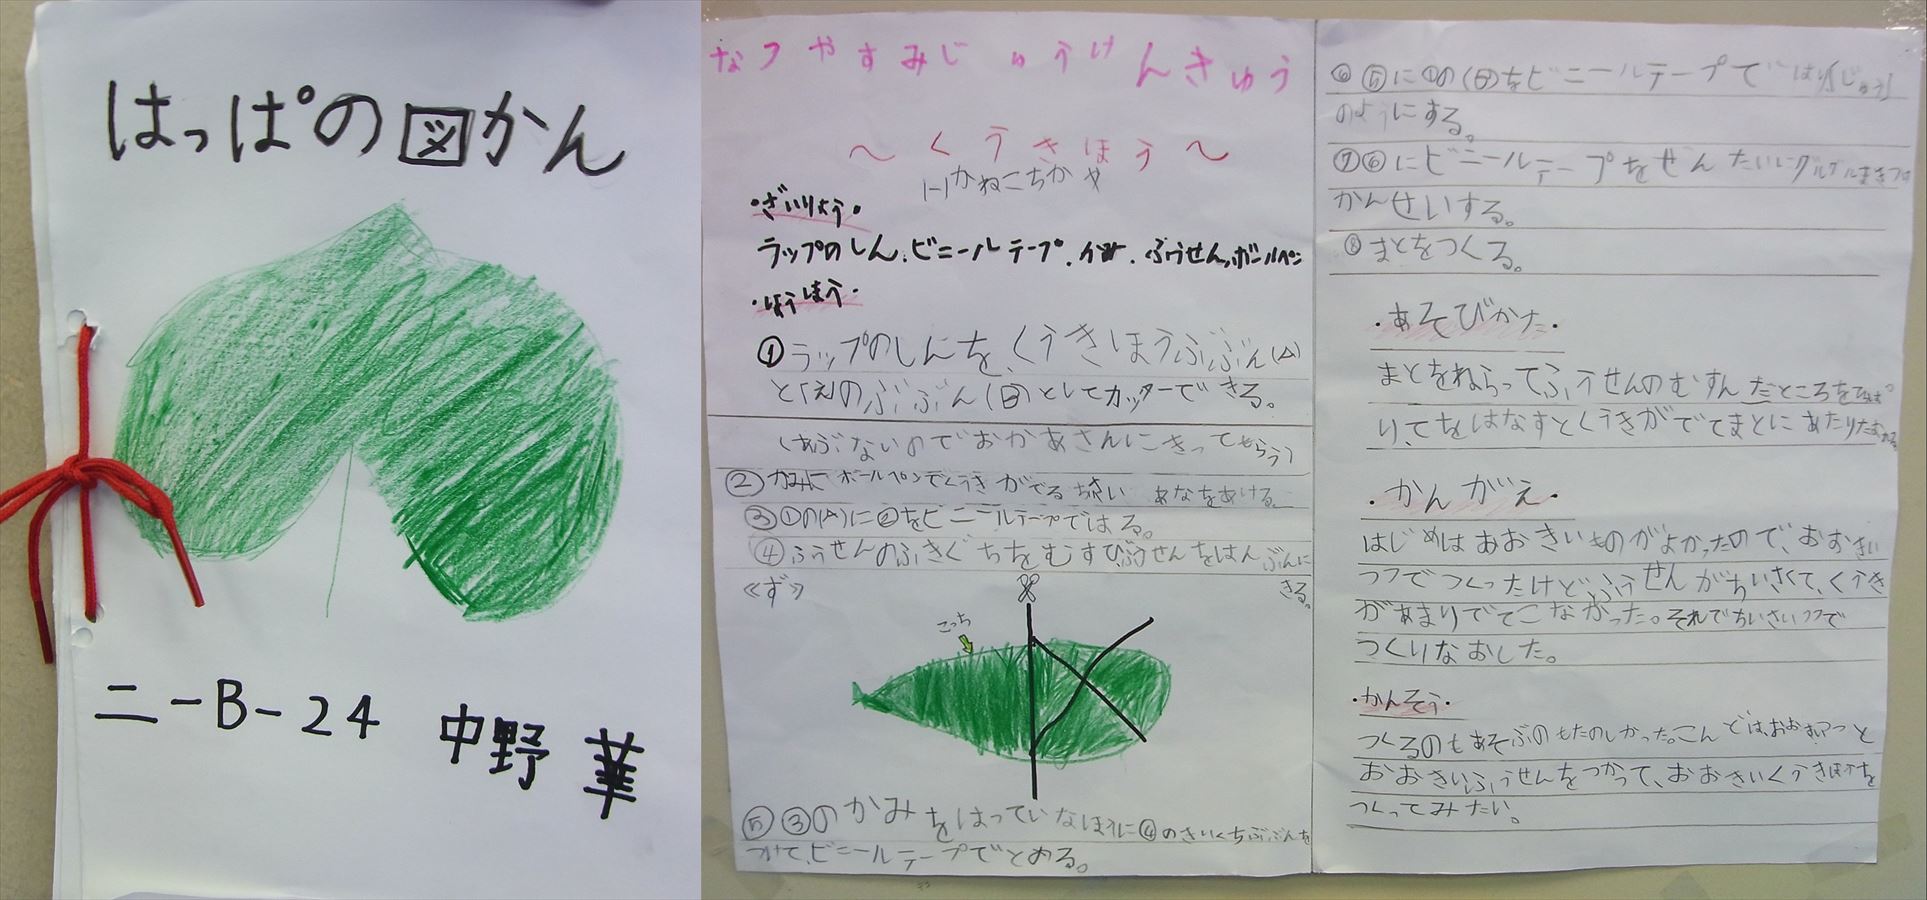 はっぱの図かん
二-B-24 中野 華
なつやすみじゅうけんきゅう
〜くうきほう〜
1-1かねこちかや
・ざいりょう・
ラップのしん、ビニールテープ、かみ、ふうせん、ボールペン
・ほうほう・
①ラップのしんを、くうきほうぶぶん(A)
と「え」のぶぶん(B)としてカッターできる。
(あぶないのでおかあさんにきってもらう)
②かみにボールペンでくうきがでる ちいさい あなをあける。
③①の(A)に②をビニールテープではる。
④ふうせんのふきぐちをむすび、ふうせんをはんぶんに
きる。
≪ず≫
こっち
⑤③のかみをはっていないほうに④の ぶぶんを
つけて、ビニールテープでとめる。
⑥⑤に①の(B)をビニールテープではり「じゅう」
のようにする。
⑦⑥にビニールテープをぜんたいにグルグルまきつけ
かんせいする。
⑧まとをつくる。
・あそびかた・
まとをねらってふうせんのむすんだところを ひっぱ
り、てをはなすとくうきがでてまとにあたりたおれる
・かんがえ・
はじめはおおきいものがよかったので、おおきい
つつでつくったけどふうせんがちいさくて、くうき
があまりでてこなかった。それでちいさいつつで
つくりなおした。
・かんそう・
つくるのもあそぶのもたのしかった。こんどはおおきいつつと
おおきいふうせんをつかって、おおきいくうきほうを
つくってみたい。